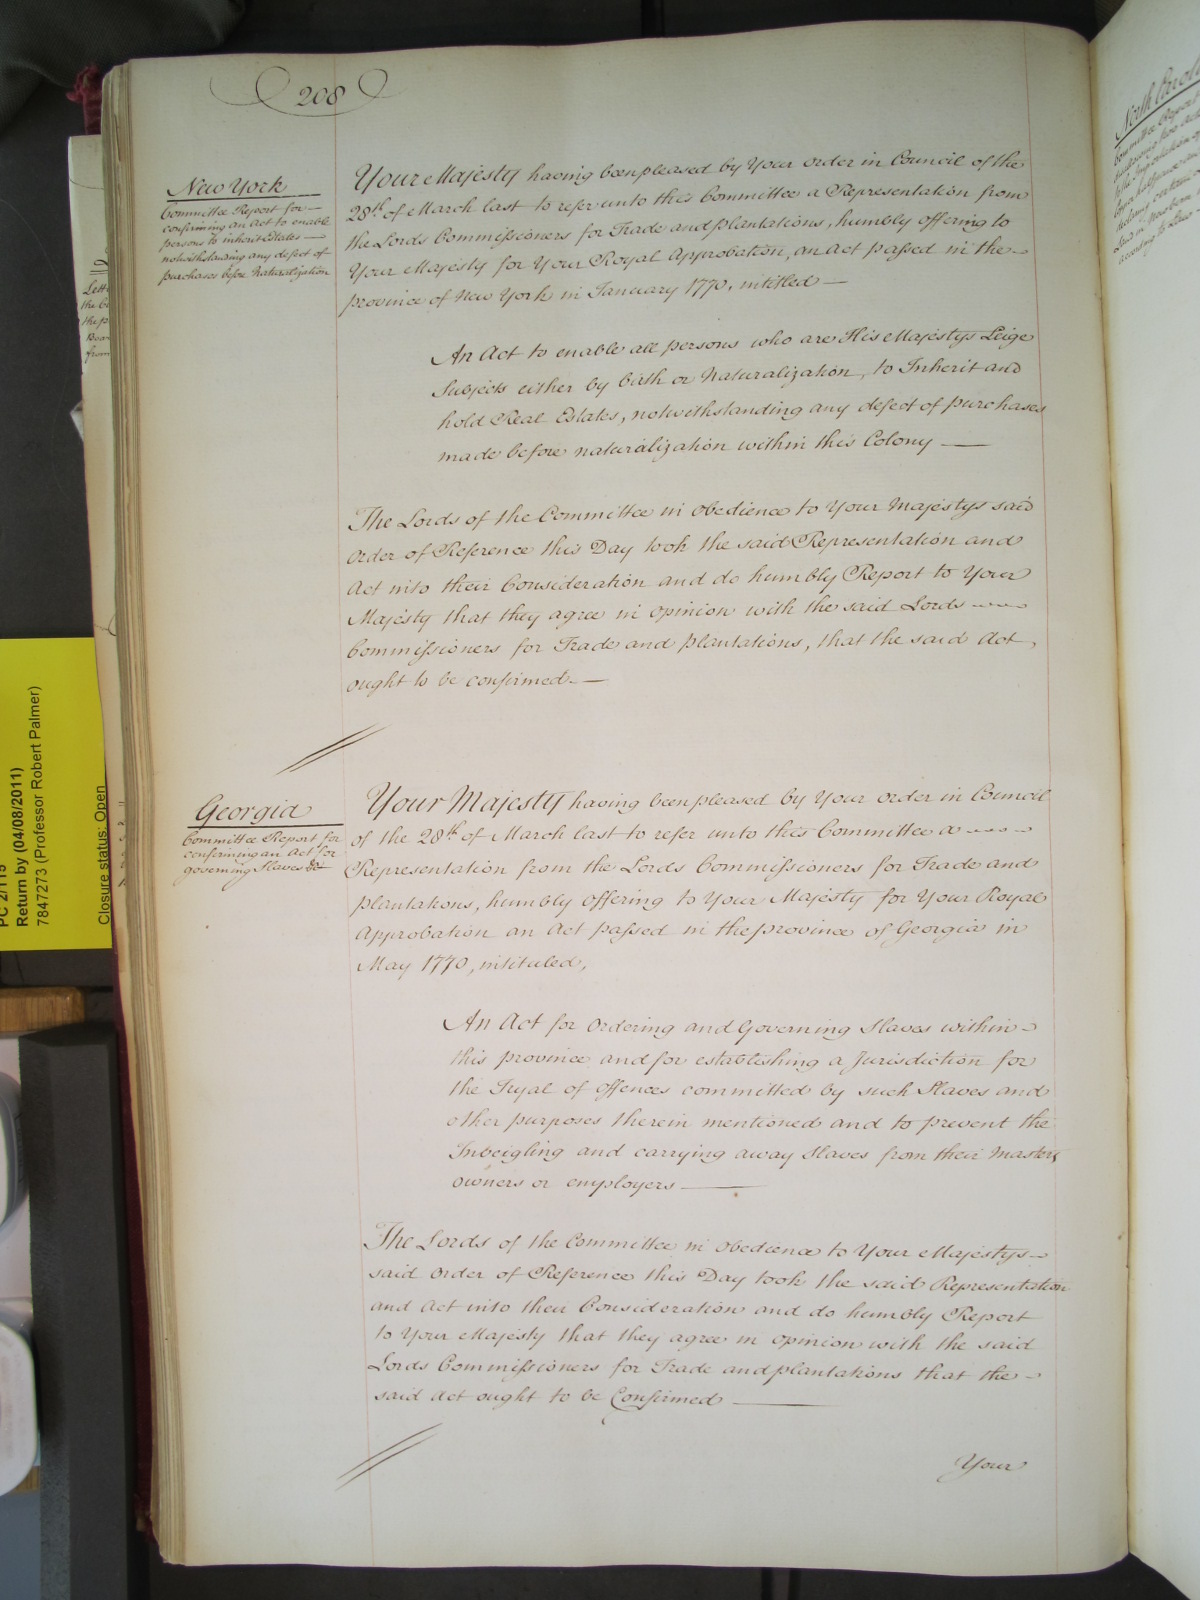 208
New York
Committee Report for
confirming an Act to enable
persons to inherit Estates
notwithstanding any defect of
purchases before Naturalization
Your Majesty having been pleased by Your order in Council of the
28th of March last to refer unto this Committee a Representation from
the Lords Commissioners for Trade and plantations, humbly offering to
Your Majesty for Your Royal Approbation, an Act passed in the
province of New York in January 1770, intitled
An Act to enable all persons who are His Majestys Leige
Subjects either by birth or Naturalization, to Inherit and
hold Real Estates, notwithstanding any defect of purchases
made before naturalization within this Colony
The Lords of the Committee in obedience to Your Majestys said
Order of Reference this Day took the said Representation and
Act into their Consideration and do humbly Report to Your
Majesty that they agree in opinion with the said Lords
Commissioners for Trade and plantations, that the said Act,
ought to be confirmed.
Georgia
Committee Report for
confirming an Act for
governing Slaves &c
Your Majesty having been pleased by Your order in Council
of the 28th of March last to refer unto this Committee a
Representation from the Lords Commissioners for Trade and
plantations, humbly offering to Your Majesty for Your Royal
Approbation an Act passed in the province of Georgia in
May 1770, intituled,
An Act for Ordering and Governing Slaves within
this province and for establishing a Jurisdiction for
the Tryal of offences committed by such Slaves and
other purposes therein mentioned and to prevent the
Inveigling and carrying away Slaves from their Masters
owners or employers
The Lords of the Committee in obedience to Your Majestys
said Order of Reference this Day took the said Representation
and Act into their Consideration and do humbly Report
to Your Majesty that they agree in opinion with the said
Lords Commissioners for Trade and plantations that the
said Act ought to be Confirmed
Your
PC 2/115
Return by (04/08/2011)
7847273 (Professor Robert Palmer)
Closure status: Open
Lett
the
the p
from
North Carol
Committee Report